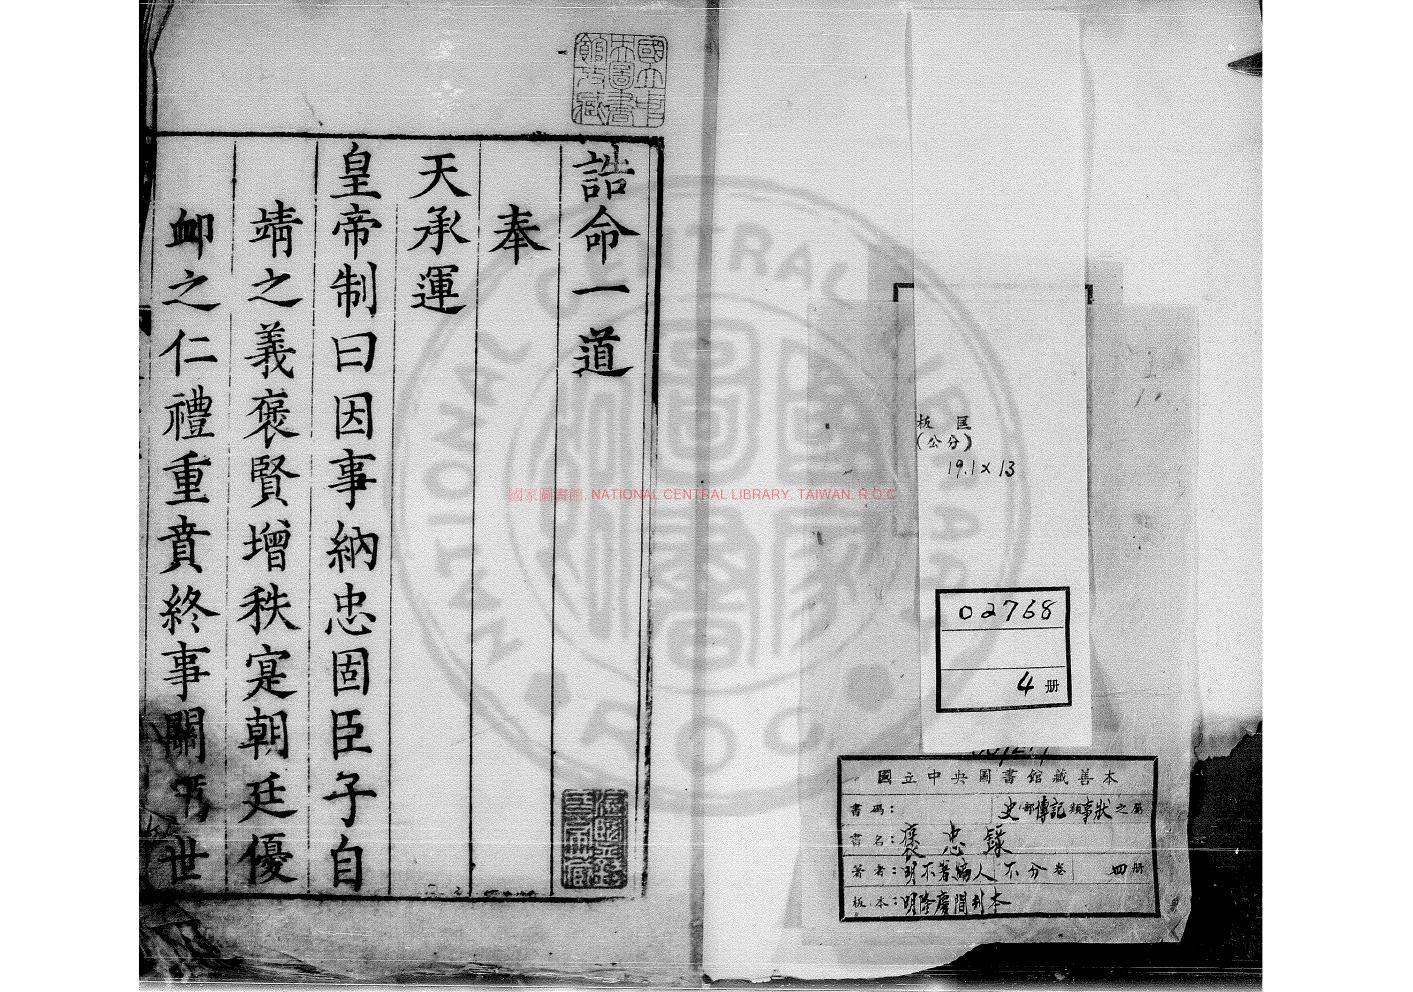 誥命一道
奉
天承運
皇帝制曰因事納忠固臣子自
靖之義褒賢增秩寔朝廷優
卹之仁禮重賁終事關世
國立中央圖書館收藏
國家圖書館, NATIONAL CENTRAL LIBRARY, TAIWAN, R.O.C
NATIONAL CENTRAL LIBRARY
國家圖書
R O C
板匡
(公分)
19.1×13
02768
4 册
國立中央圖書館藏善本
書碼: 史部傳記類事狀之屬
書名:褒忠錄
著者:明不著編人 不分卷 四册
板本:明隆慶間刊本